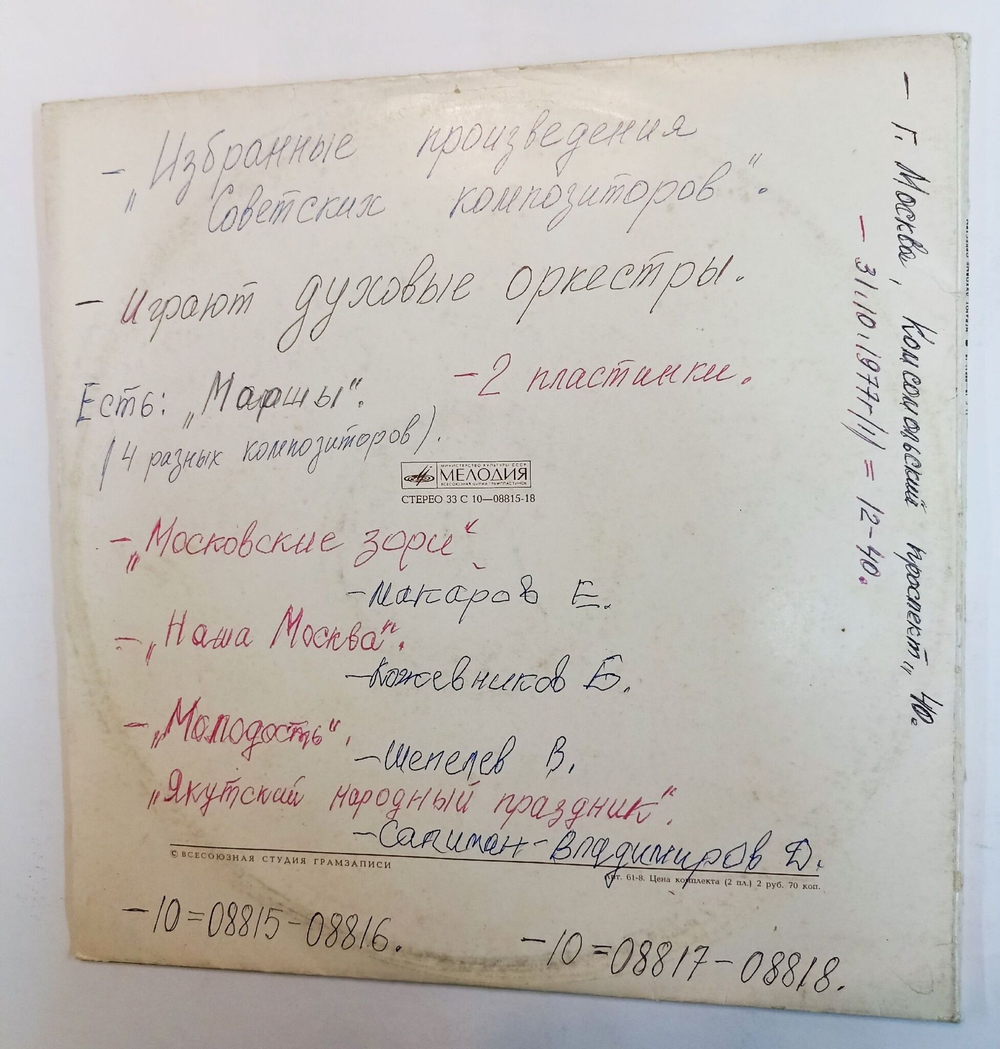 — „Избранные произведения
Советских композиторов".
— играют духовые оркестры.
— 2 пластинки.
Есть: „Марши".
(4 разных композиторов).
МИНИСТЕРСТВО КУЛЬТУРЫ СССР
МЕЛОДИЯ
ВСЕСОЮЗНАЯ ФИРМА ГРАМПЛАСТИНОК
СТЕРЕО 33 С 10—08815-18
— „Московские зори"
— Макаров Е.
— „Наша Москва".
— Кожевников Б.
— „Молодость".
— Шепелев В.
„Якутский народный праздник".
— Салиман-Владимиров Д.
© ВСЕСОЮЗНАЯ СТУДИЯ ГРАМЗАПИСИ
Арт. 61-8. Цена комплекта (2 пл.) 2 руб. 70 коп.
— 10=08815-08816.
— 10=08817-08818.
— г. Москва, Комсомольский проспект,, 40.
— 31.10.1977г 11) = 12-40.